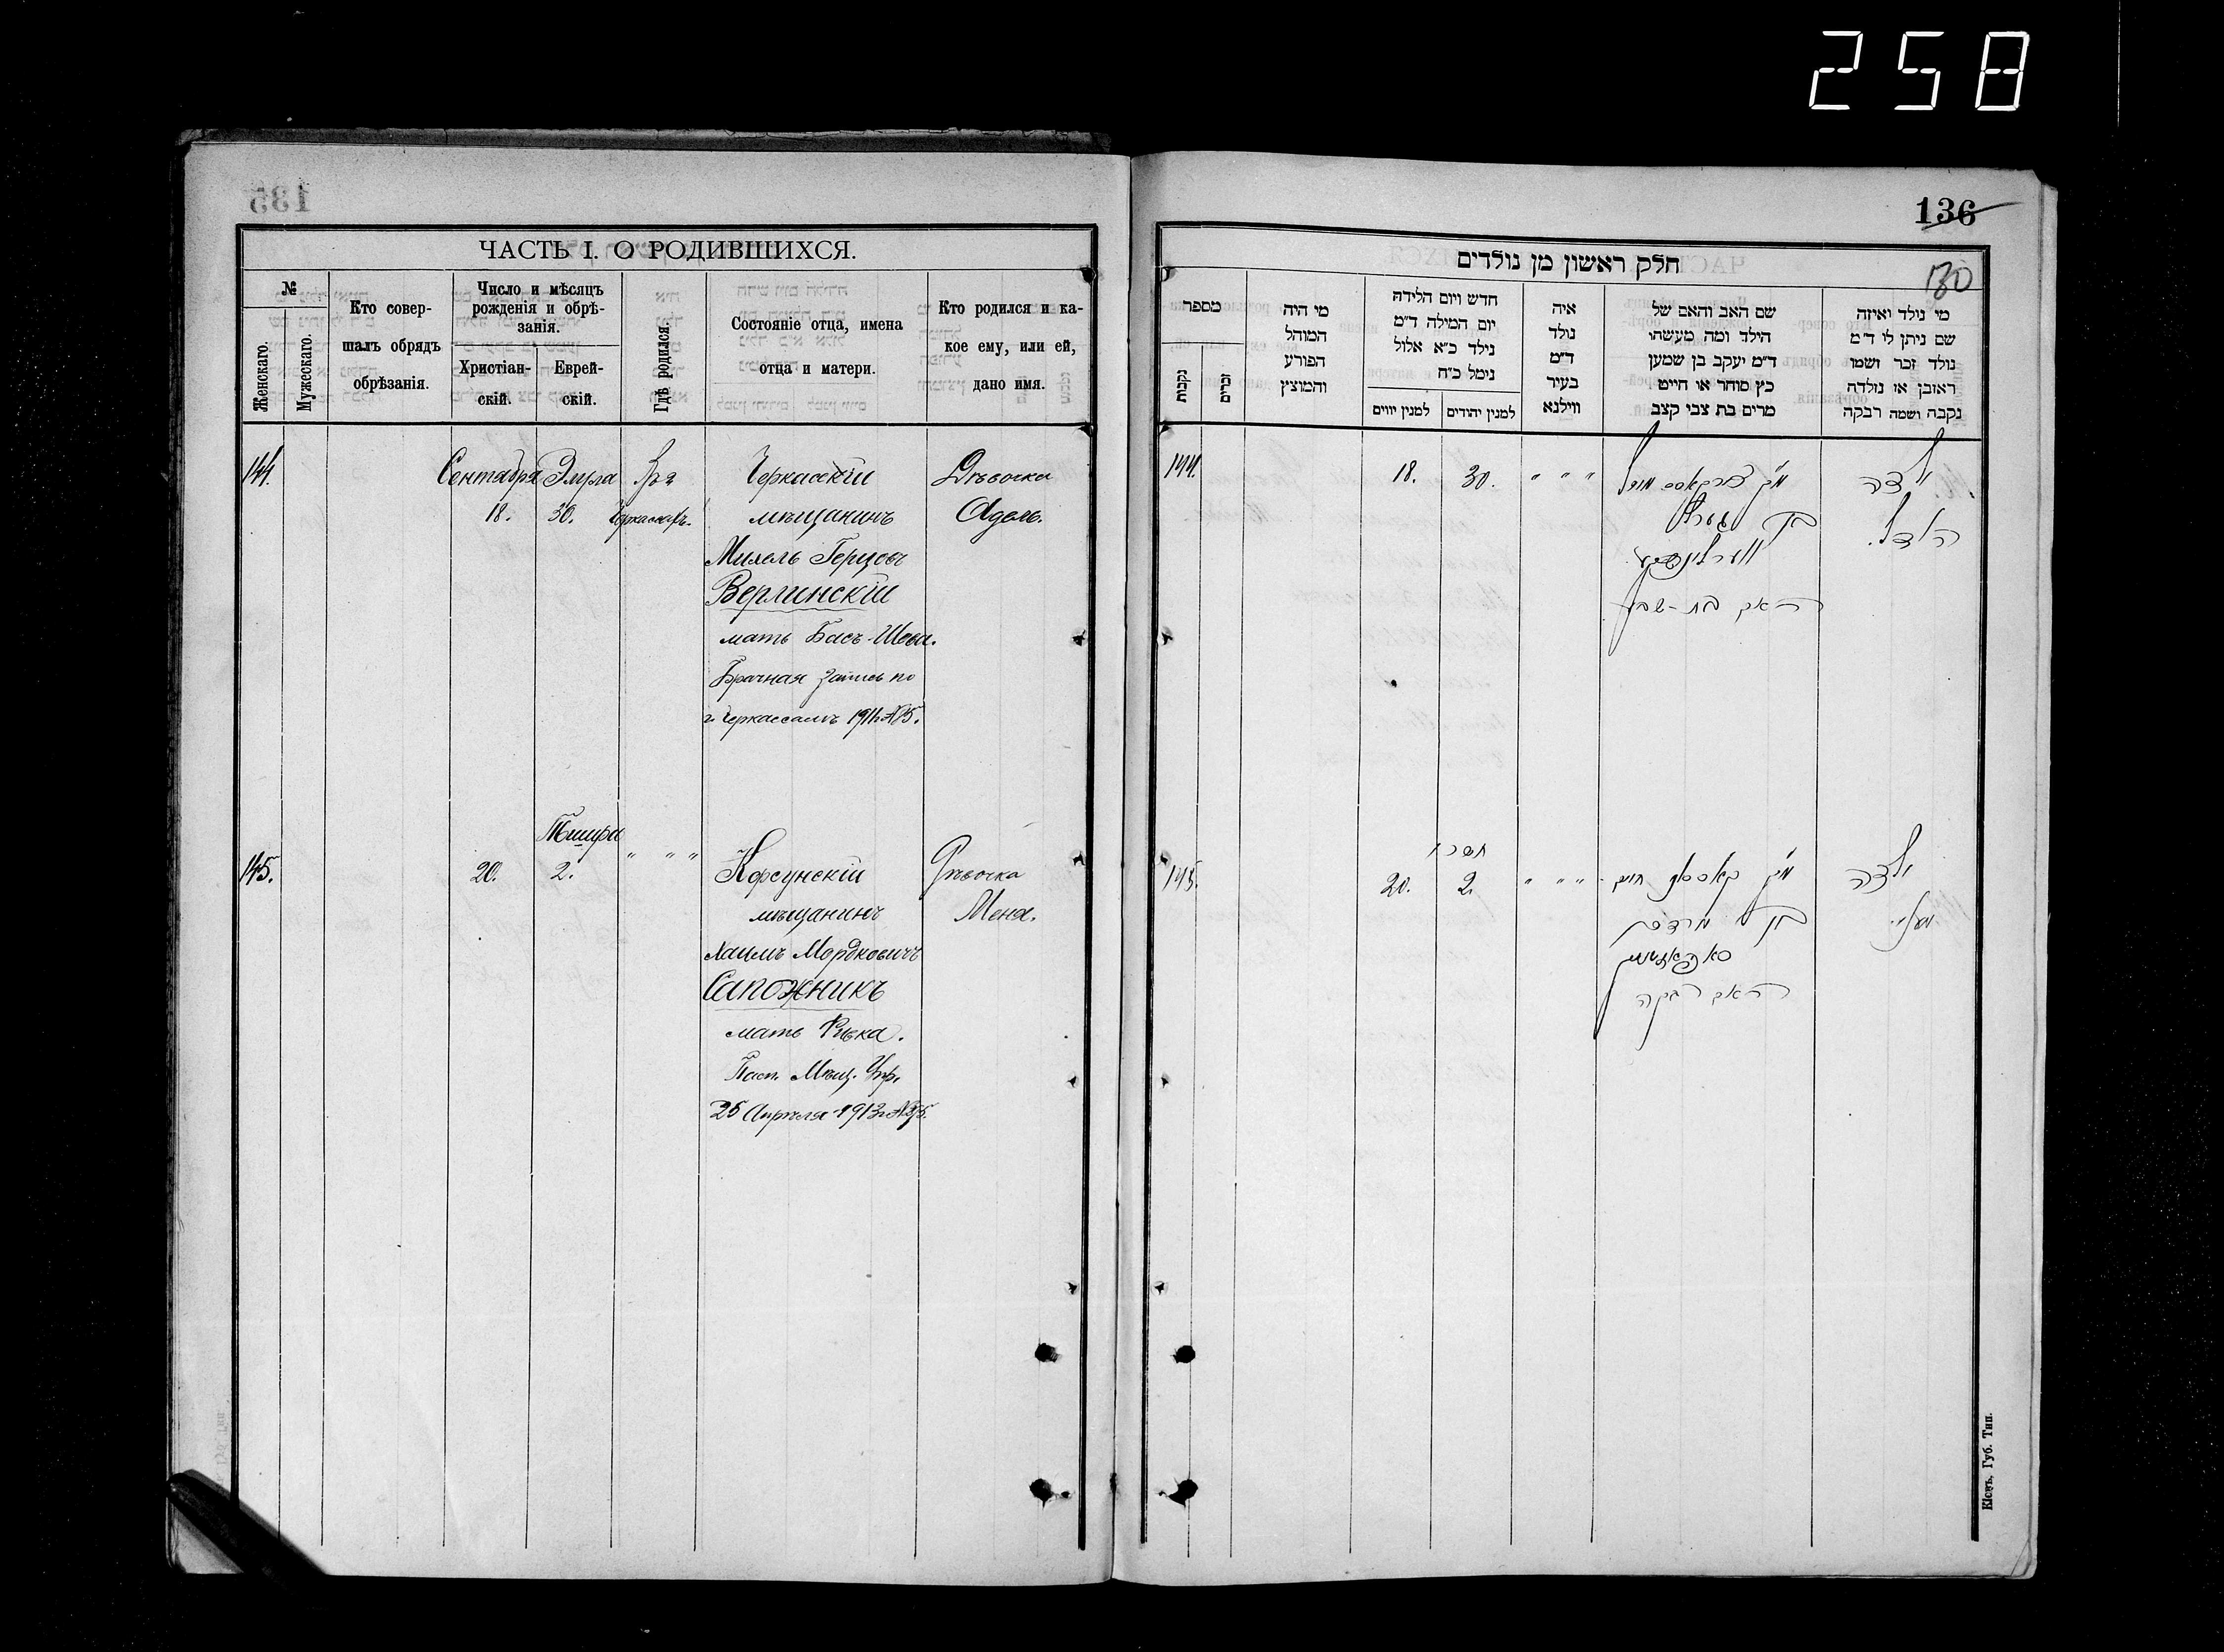 258
135
ЧАСТЬ I. О РОДИВШИХСЯ.
№
Женскаго.
Мужескаго.
Кто совер-
шалъ обрядъ
обрѣзанія.
Число и мѣсяцъ
рожденія и обрѣ-
занія.
Христіан-
скій.
Еврей-
скій.
Гдѣ родился.
Состояніе отца, имена
отца и матери.
Кто родился и ка-
кое ему, или ей,
дано имя.
144.
Сентября
18.
Элула
30.
Черкассахъ.
Черкасскій
мѣщанинъ
Михель Герцовъ
Верлинскій
мать Бася-Шева.
Брачная запись по
г. Черкассамъ 1911 г. №5.
Дѣвочка
Адель.
145.
20.
Тишра
2.
" " "
Корсунскій
мѣщанинъ
Хаимъ Мордковичъ
Сапожникъ
мать Ривка.
Пасп. Мѣщ. Упр.
25 Апрѣля 1913 г.
Дѣвочка
Меня.
136
130
חלק ראשון מן נולדים
מספר
נקבות
זכרים
מי היה
המוהל
הפורע
והמוצץ
חדש ויום הלידה
יום המילה ד״מ
נילד כ״א אלול
נימל כ״ח
למנין יווים
למנין יהודים
איה
נולד
ד״מ
בעיר
ווילנא
שם האב והאם של
הילד ומה מעשהו
ד״מ יעקב בן שמען
כץ סוחר או חייט
מרים בת צבי קצב
מי נולד ואיזה
שם ניתן לו ד״מ
נולד זכר ושמו
ראובן או נולדה
נקבה ושמה רבקה
144.
18.
30.
" " "
בן
האם בת-שבע
ילדה
האדל.
145.
20.
תשרי
2.
" " "
חיים
בן מרדכי
האם רבקה
ילדה
Кіевъ. Губ. Тип.